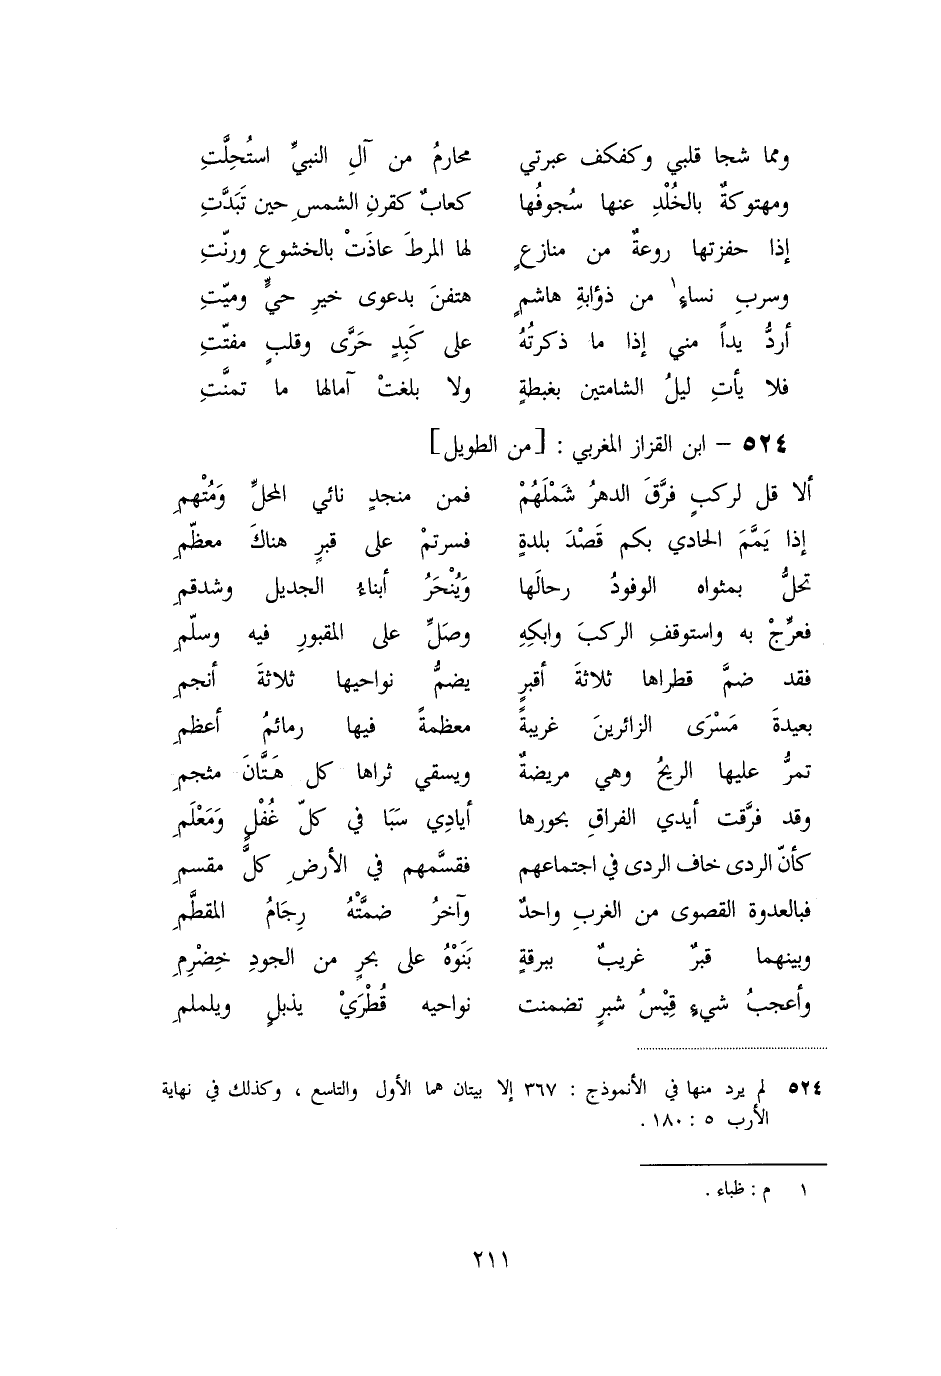 ومما شجا قلبي وكفكف عبرتي محارمُ من آلِ النبيِّ استُحِلَّتِ
ومهتوكةٌ بالخُلْدِ عنها سُجوفُها كعابٌ كقرنِ الشمسِ حين تَبَدَّتِ
إذا حفزتها روعةٌ من منازعٍ لها المرطَ عاذَتْ بالخشوعِ ورنّتِ
وسربِ نساءٍ١ من ذؤابةِ هاشمٍ هتفنَ بدعوى خيرِ حيٍّ وميّتِ
أردُّ يداً مني إذا ما ذكرتُهُ على كَبِدٍ حَرَّى وقلبٍ مفتّتِ
فلا يأتِ ليلُ الشامتين بغبطةٍ ولا بلغتْ آمالها ما تمنَّتِ
٥٢٤ – ابن القزاز المغربي : [من الطويل]
ألا قل لركبٍ فرَّقَ الدهرُ شَمْلَهُمْ فمن منجدٍ نائي المحلِّ وَمُتْهمِ
إذا يَمَّمَ الحادي بكم قَصْدَ بلدةٍ فسرتمْ على قبرٍ هناكَ معظّمِ
تحلُّ بمثواه الوفودُ رحالَها وَيُنْحَرُ أبناءُ الجديل وشدقمِ
فعرِّجْ به واستوقفِ الركبَ وابكِهِ وصَلِّ على المقبورِ فيه وسلّمِ
فقد ضمَّ قطراها ثلاثةَ أقبرٍ يضمُّ نواحيها ثلاثةَ أنجمِ
بعيدةَ مَسْرَى الزائرينَ غريبةً معظمةً فيها رمائمُ أعظمِ
تمرُّ عليها الريحُ وهي مريضةٌ ويسقي ثراها كل هَتَّانَ مثجمِ
وقد فرَّقت أيدي الفراقِ بحورها أيادِي سَبَا في كلّ غُفْلٍ وَمَعْلَمِ
كأنّ الردى خاف الردى في اجتماعهم فقسَّمهم في الأرضِ كلَّ مقسمِ
فبالعدوة القصوى من الغربِ واحدٌ وآخرُ ضمتْهُ رِجَامُ المقطَّمِ
وبينهما قبرٌ غريبٌ ببرقةٍ بَنَوْهُ على بحرٍ من الجودِ خِضْرِمِ
وأعجبُ شيءٍ قِيْسُ شبرٍ تضمنت نواحيه قُطْرَيْ يذبلٍ ويلملمِ
٥٢٤ لم يرد منها في الأنموذج : ٣٦٧ إلا بيتان هما الأول والتاسع ، وكذلك في نهاية
الأرب ٥ : ١٨٠ .
١ م : ظباء .
٢١١